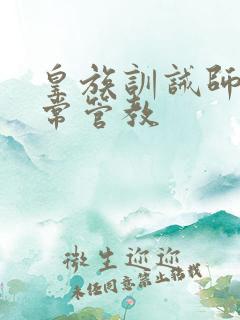 皇族訓誡師
常管教
微生迎迎
未经同意禁止转载